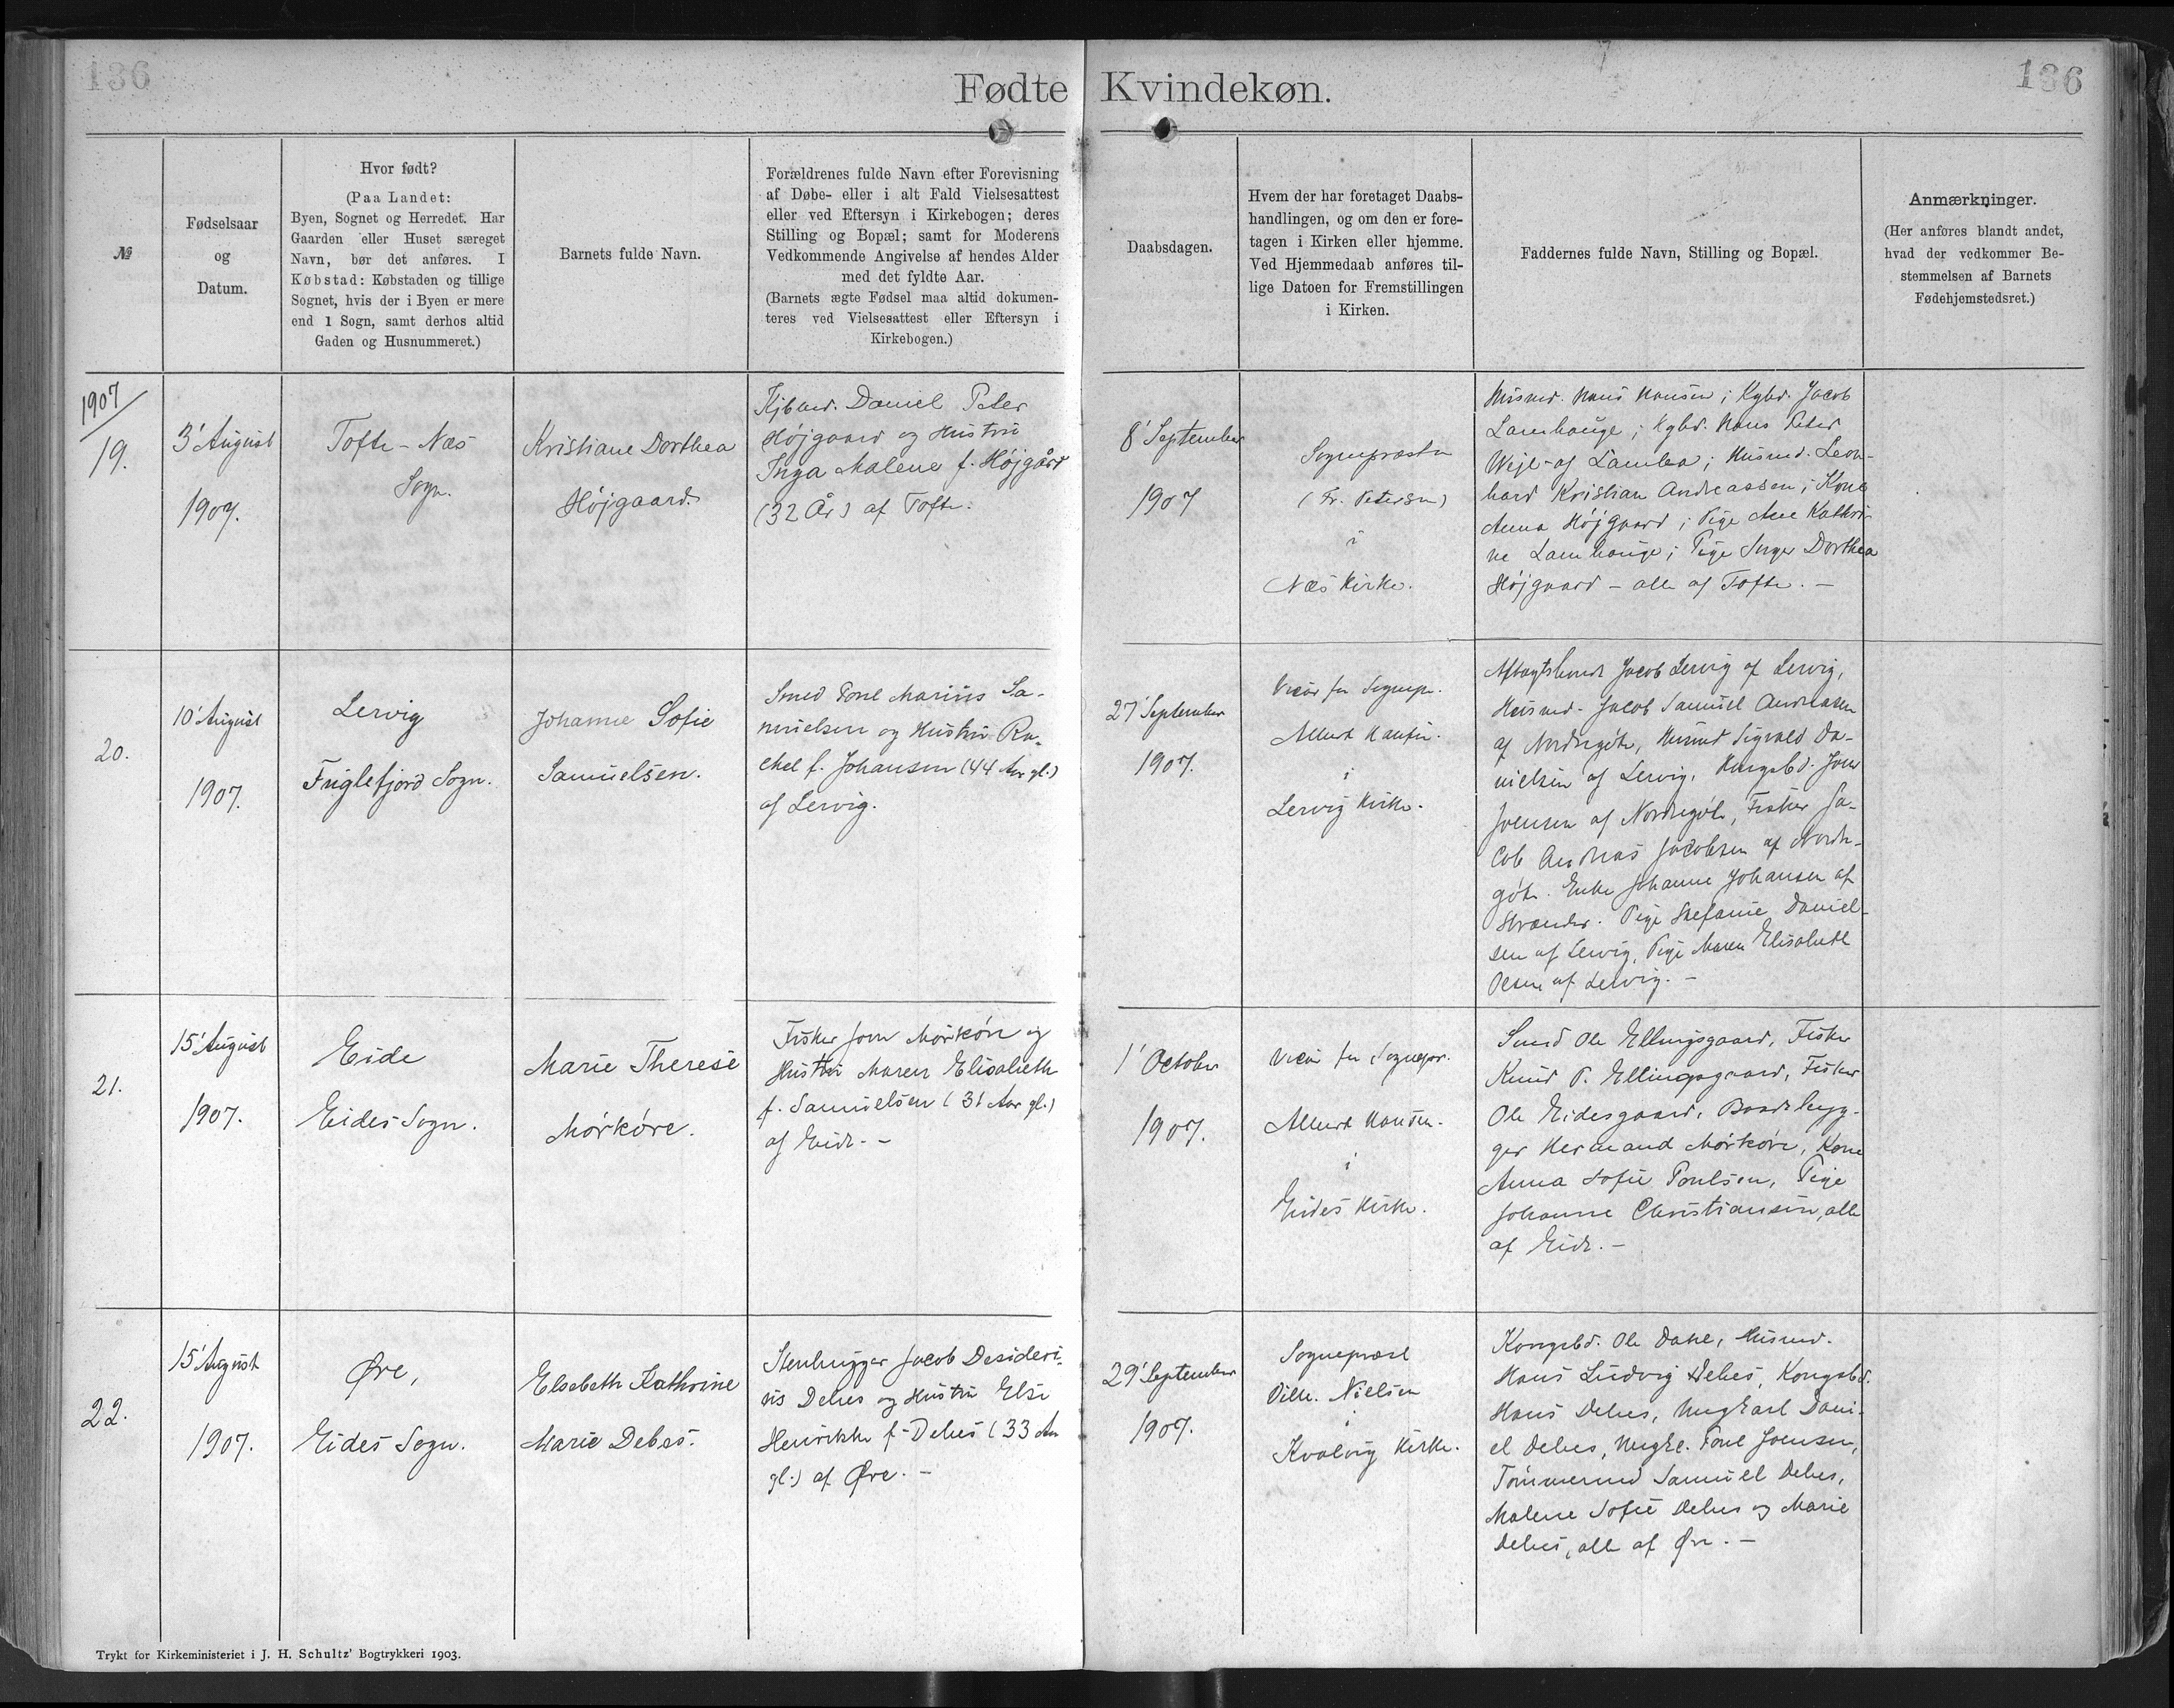 136
Fødte Kvindekøn.
136
№
Fødselsaar
og
Datum.
Hvor født?
(Paa Landet:
Byen, Sognet og Herredet. Har
Gaarden eller Huset særeget
Navn, bør det anføres. I
Købstad: Købstaden og tillige
Sognet, hvis der i Byen er mere
end 1 Sogn, samt derhos altid
Gaden og Husnummeret.)
Barnets fulde Navn.
Forældrenes fulde Navn efter Forevisning
af Døbe- eller i alt Fald Vielsesattest
eller ved Eftersyn i Kirkebogen; deres
Stilling og Bopæl; samt for Moderens
Vedkommende Angivelse af hendes Alder
med det fyldte Aar.
(Barnets ægte Fødsel maa altid dokumen-
teres ved Vielsesattest eller Eftersyn i
Kirkebogen.)
Daabsdagen.
Hvem der har foretaget Daabs-
handlingen, og om den er fore-
tagen i Kirken eller hjemme.
Ved Hjemmedaab anføres til-
lige Datoen for Fremstillingen
i Kirken.
Faddernes fulde Navn, Stilling og Bopæl.
Anmærkninger.
(Her anføres blandt andet,
hvad der vedkommer Be-
stemmelsen af Barnets
Fødehjemstedsret.)
1907
19.
3' August
1907.
Tofte - Næs
Sogn.
Kristiane Dorthea
Højgaard.
Kjbmd. Daniel Peter
Højgaard og Hustru
Inga Malene f. Højgård
(32 År) af Tofte.
8' September
1907
Sognepræsten
(Fr. Petersen)
i
Næs Kirke.
Husmd. Hans Hansen; Kgbd. Jacob
Lamhauge; Kgbd. Hans Peter
Wejl- af Lamba; Husmd. Leon-
hard Kristian Andreassen; Kone
Anna Højgaard; Pige Ane Kathri-
ne Lamhauge; Pige Inger Dorthea
Højgaard - alle af Tofte. -
20.
10' August
1907.
Lervig
Fuglefjord Sogn.
Johanne Sofie
Samuelsen.
Smed Poul Marius Sa-
muelsen og Hustru Ra-
chel f. Johansen (44 Aar gl.)
af Lervig.
27' September
1907.
Vicar for Sognepr.
Albert Hansen.
i
Lervig Kirke.
Aftægtsmand Jacob Lervig af Lervig,
Husmd. Jacob Samuel Andreasen
af Nordregøte, Husmd Sigvald Da-
nielsen af Lervig. Kongsbd. Joen
Joensen af Nordregøte, Fisker Ja-
cob Andreas Jacobsen af Nordre-
gøte. Enke Johanne Johansen af
Strander. Pige Stefanie Daniel-
sen af Lervig, Pige Maren Elisabeth
Olsen af Lervig. -
21.
15' August
1907.
Eide
Eides Sogn.
Marie Therese
Mørkøre.
Fisker Joen Mørkøre og
Hustru Maren Elisabeth
f. Samuelsen (31 Aar gl.)
af Eide. -
1' October
1907.
Vicar for Sognepr.
Albert Hansen.
i
Eides Kirke.
Smed Ole Ellingsgaard, Fisker
Knud P. Ellingsgaard, Fisker
Ole Eidesgaard, Baadebyg-
ger Hermand Mørkøre, Kone
Anna Sofie Poulsen, Pige
Johanne Christiansen, alle
af Eide. -
22.
15' August
1907.
Øre,
Eides Sogn.
Elsebeth Kathrine
Marie Debes.
Stenhugger Jacob Desideri-
us Debes og Hustru Else
Henrikke f. Debes (33 Aar
gl.) af Øre. -
29' September
1907.
Sognepræst
Vilh. Nielsen
i
Kvalvig Kirke.
Kongsbd. Ole Dahl, Husmd.
Hans Ludvig Debes, Kongsbd.
Hans Debes, Ungkarl Dani-
el Debes, Ungk. Poul Joensen,
Tømmermd Samuel Debes,
Malene Sofie Debes og Marie
Debes, alle af Øre. -
Trykt for Kirkeministeriet i J. H. Schultz' Bogtrykkeri 1903.